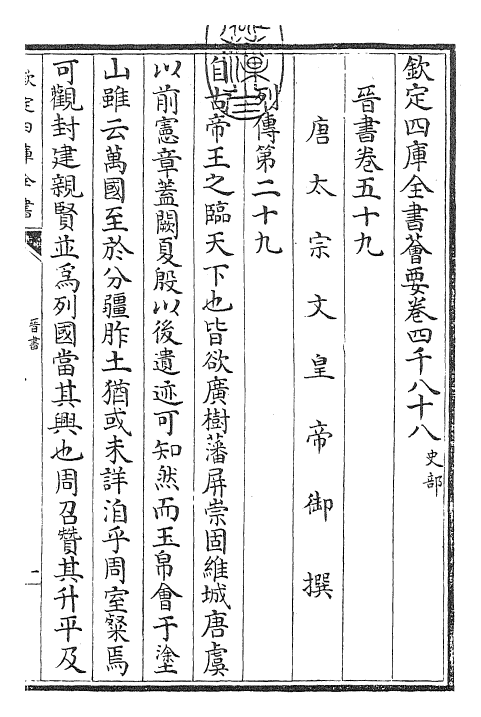 欽定四庫全書薈要卷四千八十八 史部
晉書卷五十九
唐太宗文皇帝御撰
列傳第二十九
自古帝王之臨天下也皆欲廣樹藩屏崇固維城唐虞
以前憲章蓋闕夏殷以後遺迹可知然而玉帛會于塗
山雖云萬國至於分疆胙土猶或未詳洎乎周室粲焉
可觀封建親賢並為列國當其興也周召贊其升平及
欽定四庫全書
晉書
一